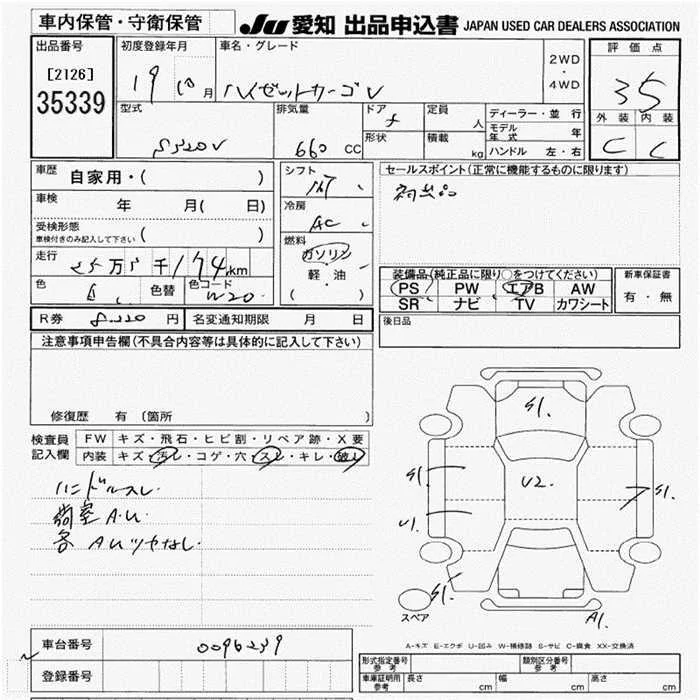 車内保管・守衛保管
JU 愛知 出品申込書 JAPAN USED CAR DEALERS ASSOCIATION
出品番号
[2126]
35339
初度登録年月
19 10月
車名・グレード
ハイゼットカーゴV
2WD
・
4WD
評価点
35
外装 内装
C C
型式
S320V
排気量
660 CC
ドア
定員
人
形状
積載
kg
ディーラー・並行
モデル年式 年
ハンドル 左・右
車歴
自家用・( )
車検
年 月( 日)
受検形態
車検付きのみ記入して下さい ( )
走行
25万5千174km
色
色替
色コード
W20
シフト
AT
冷房
AC
燃料
ガソリン
・
軽・油
( )
セールスポイント(正常に機能するものに限ります)
装備品(純正品に限り○をつけてください)
PS PW エアB AW
SR ナビ TV カワシート
新車保証書
有・無
R券 8,320 円 名変通知期限 月 日
後日品
注意事項申告欄(不具合内容等は具体的に記入して下さい)
修復歴 有 (箇所 )
検査員
記入欄
FW キズ・飛石・ヒビ割・リペア跡・X要
内装 キズ・汚レ・コゲ・穴・スレ・キレ・
ハンドルスレ
荷室AU
各AUツヤなし
S1.
S1.
U2.
S1.
U1.
S1.
A1.
スペア
A-キズ E-エクボ U-凹み W-補修跡 S-サビ C-腐食 XX-交換済
車台番号 0096239
登録番号
型式指定番号
参考
類別区分番号
参考
車庫証明用
参考
長さ cm 幅 cm 高さ cm